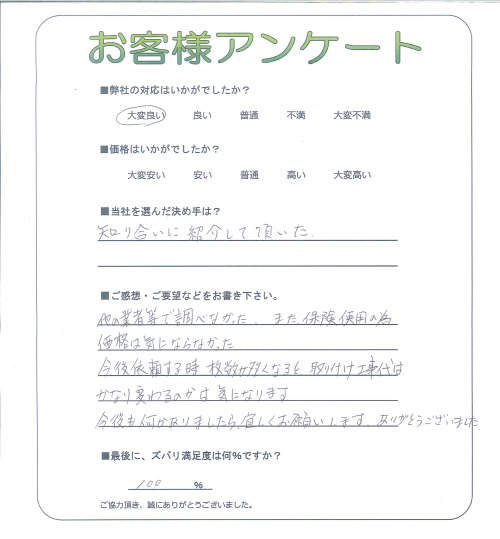 お客様アンケート
■弊社の対応はいかがでしたか？
大変良い 良い 普通 不満 大変不満
■価格はいかがでしたか？
大変安い 安い 普通 高い 大変高い
■当社を選んだ決め手は？
知り合いに紹介して頂いた.
■ご感想・ご要望などをお書き下さい。
他の業者等で調べなかった、また、保険使用の為
価格は気にならなかった
今後依頼する時 枚数が多くなると 取り付け工事代は
かなり変わるのかは気になります
今後も何かありましたら、宜しくお願いします。ありがとうございました
■最後に、ズバリ満足度は何%ですか？
100 %
ご協力頂き、誠にありがとうございました。